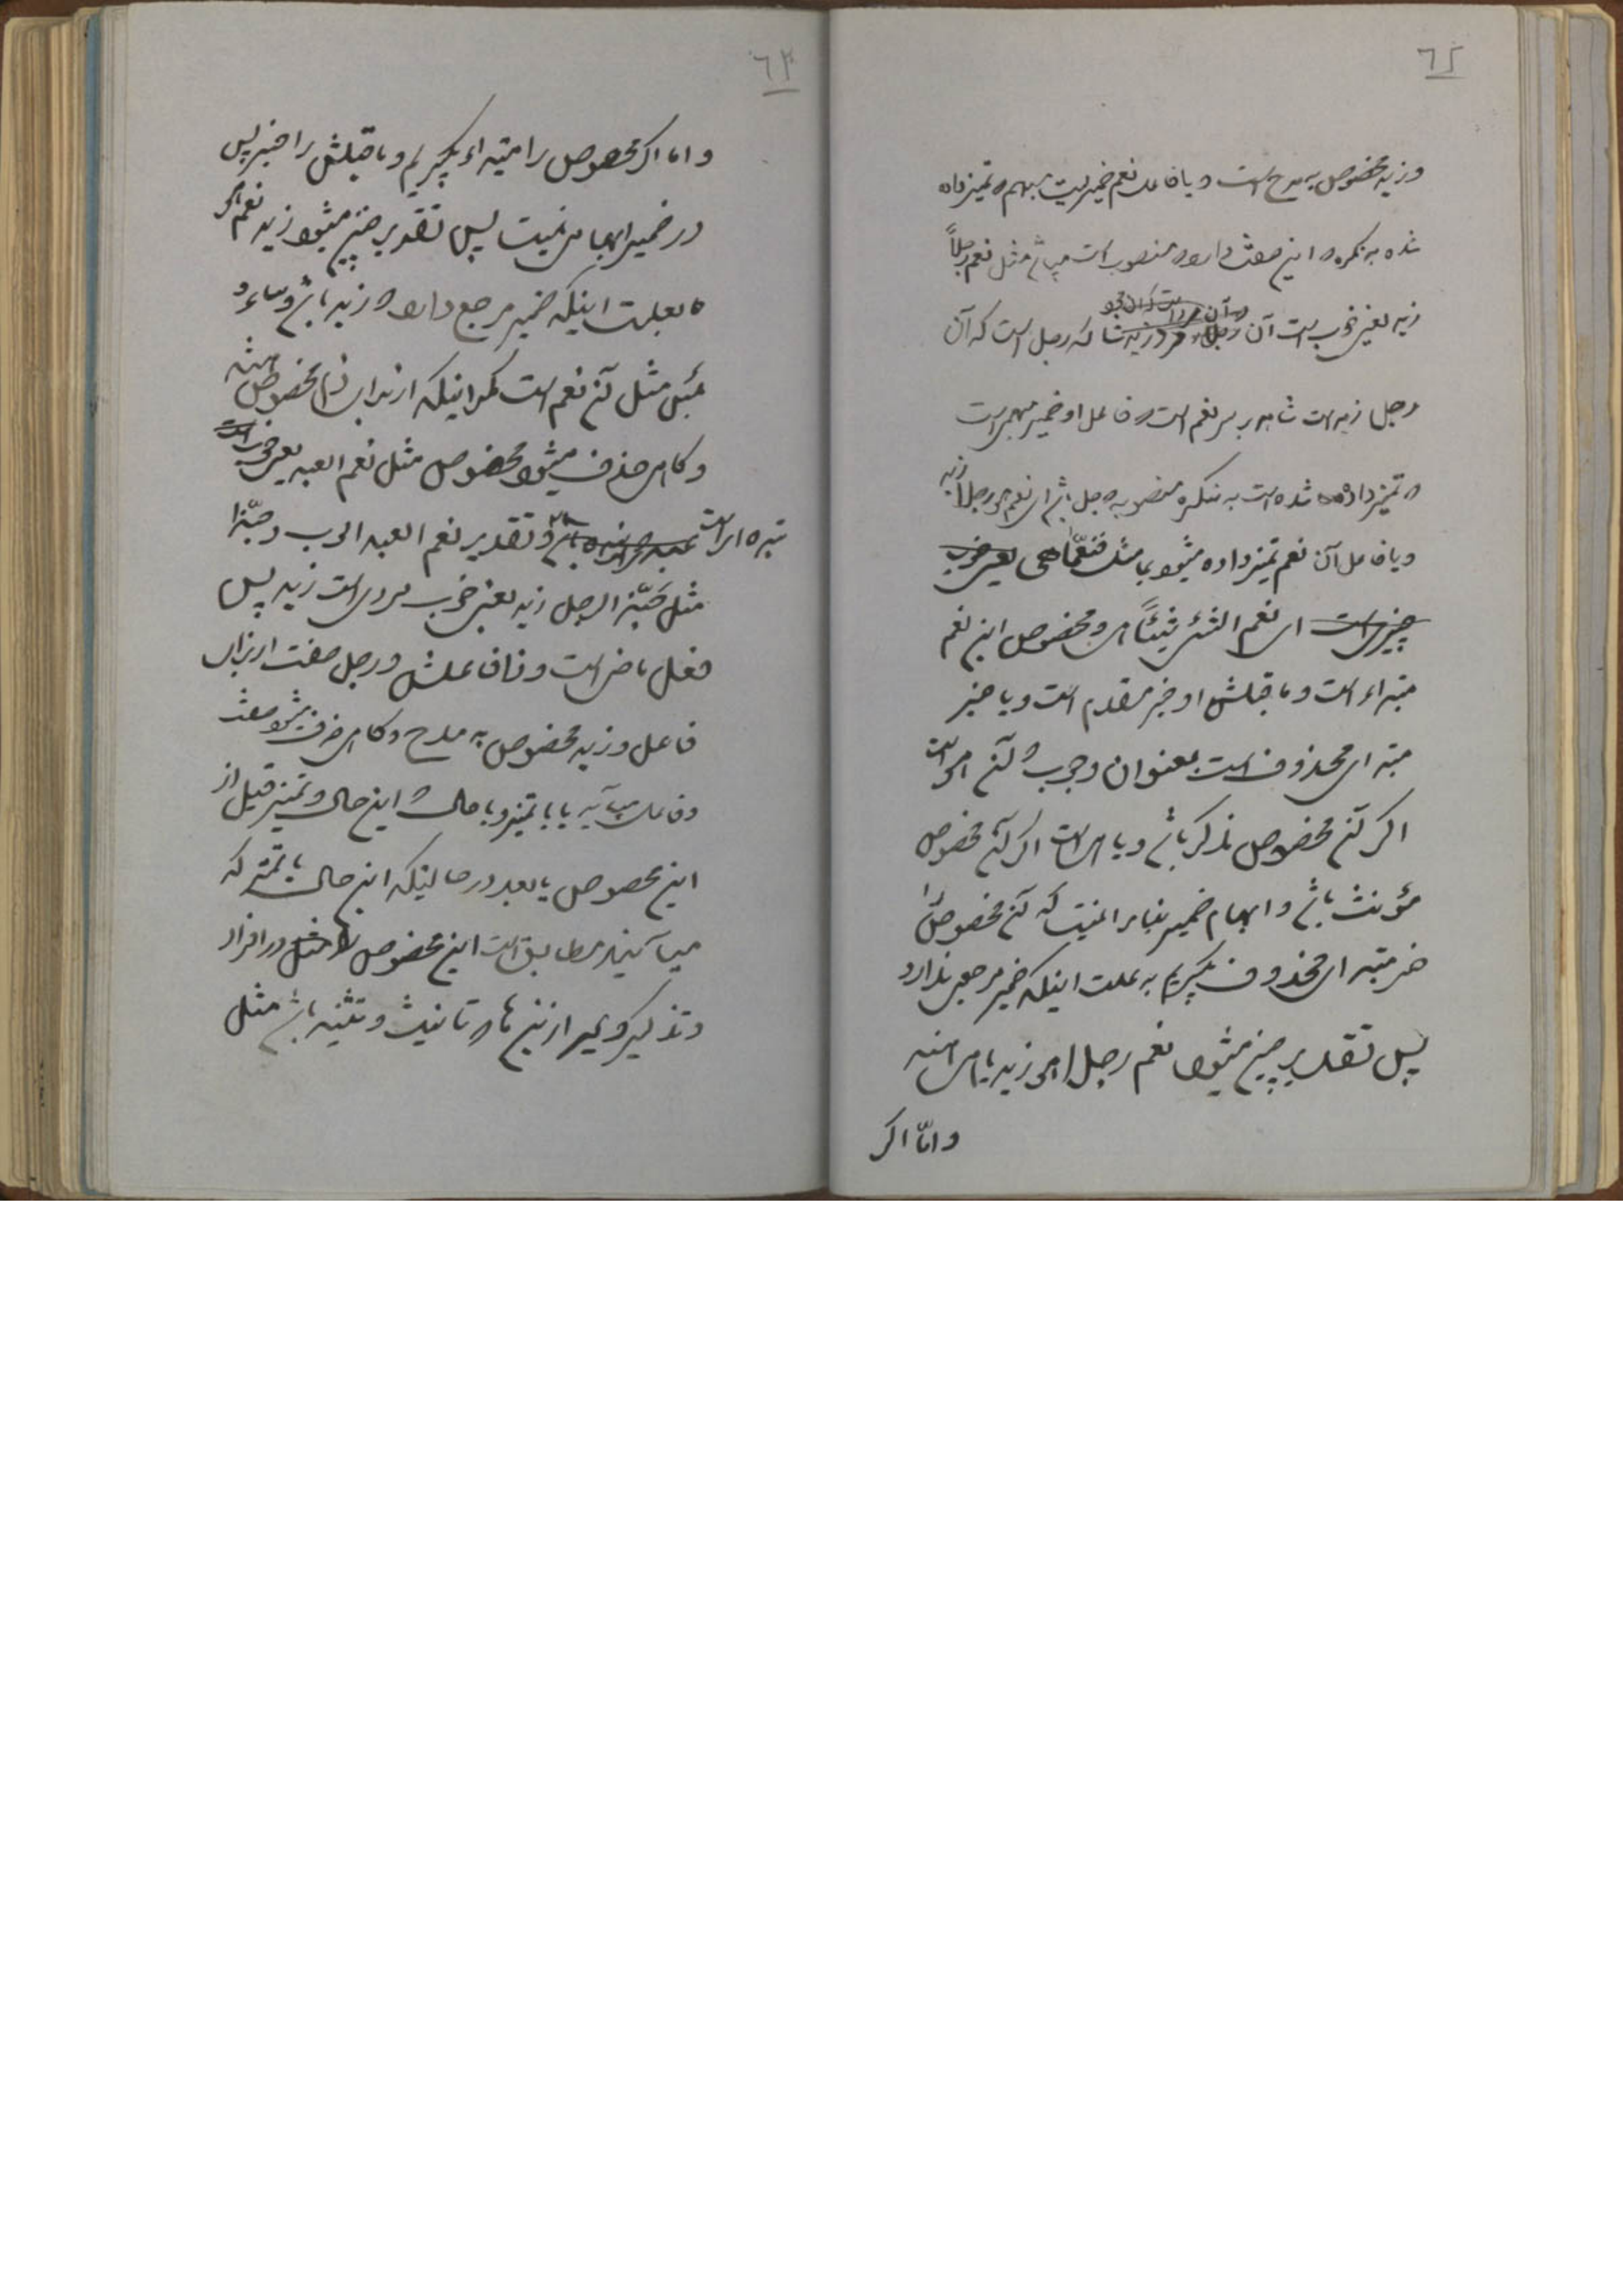 ٦٢
وزید مخصوص به مدح است و یا فاعل نعم ضمیریست مبهم و تمیز داده
شده به نکره و این صفت دارد و منصوب است میباشد مثل نعم رجلاً
زید یعنی خوب است آن رجل که رجل است که آن
رجل زید است شاهد بر سر نعم است و فاعل او ضمیر مبهم است
و تمیز داده شده است به نکره منصوبه رجل باشد ای نعم هو رجلاً زید
و یا فاعل آن نعم تمیز داده میشود بما مثل فنعّما هی یعنی خوب
چیزی است ای نعم الشئ شیئاً هی و مخصوص این نعم
مبتداء است و ما قبلش او خبر مقدم است و یا خبر
مبتدای محذوف است بعنوان وجوب و آن هو است
اگر آن مخصوص مذکر باشد و یا هی است اگر آن مخصوص
مؤنث باشد و ابهام ضمیر بنابر اینست که آن مخصوص را
خبر مبتدای محذوف بگیریم به علت اینکه ضمیر مرجعی ندارد
پس تقدیر چنین میشود نعم رجل هو زید یا هی هند
و امّا اگر
٦٣
و اما اگر مخصوص را مبتداء بگیریم و ما قبلش را خبر پس
در ضمیر ابهامی نیست پس تقدیر چنین میشود زید نعم
بعلت اینکه ضمیر مرجع دارد و زید باشد و ساء و
بئس مثل آن نعم است مگر اینکه از برای ذم مخصوص
و گاهی حذف میشود مخصوص مثل نعم العبد یعنی خوب است
بنده ای است و تقدیر نعم العبد ایوب و حبّذا
مثل حبّذا الرجل زید یعنی خوب مردی است زید پس
فعل ماضی است و ذا فاعلش و رجل صفت از برای
فاعل و زید مخصوص به مدح و گاهی حذف میشود صفت
و فاعل میآید یا با تمیز و یا حال و این حال و تمیز قبل از
این مخصوص یا بعد در حالیکه این حال یا تمیز که
میآیند مطابق است این مخصوص در افراد
و تذکیر و غیر از این ها و تانیث و تثنیه باشد مثل